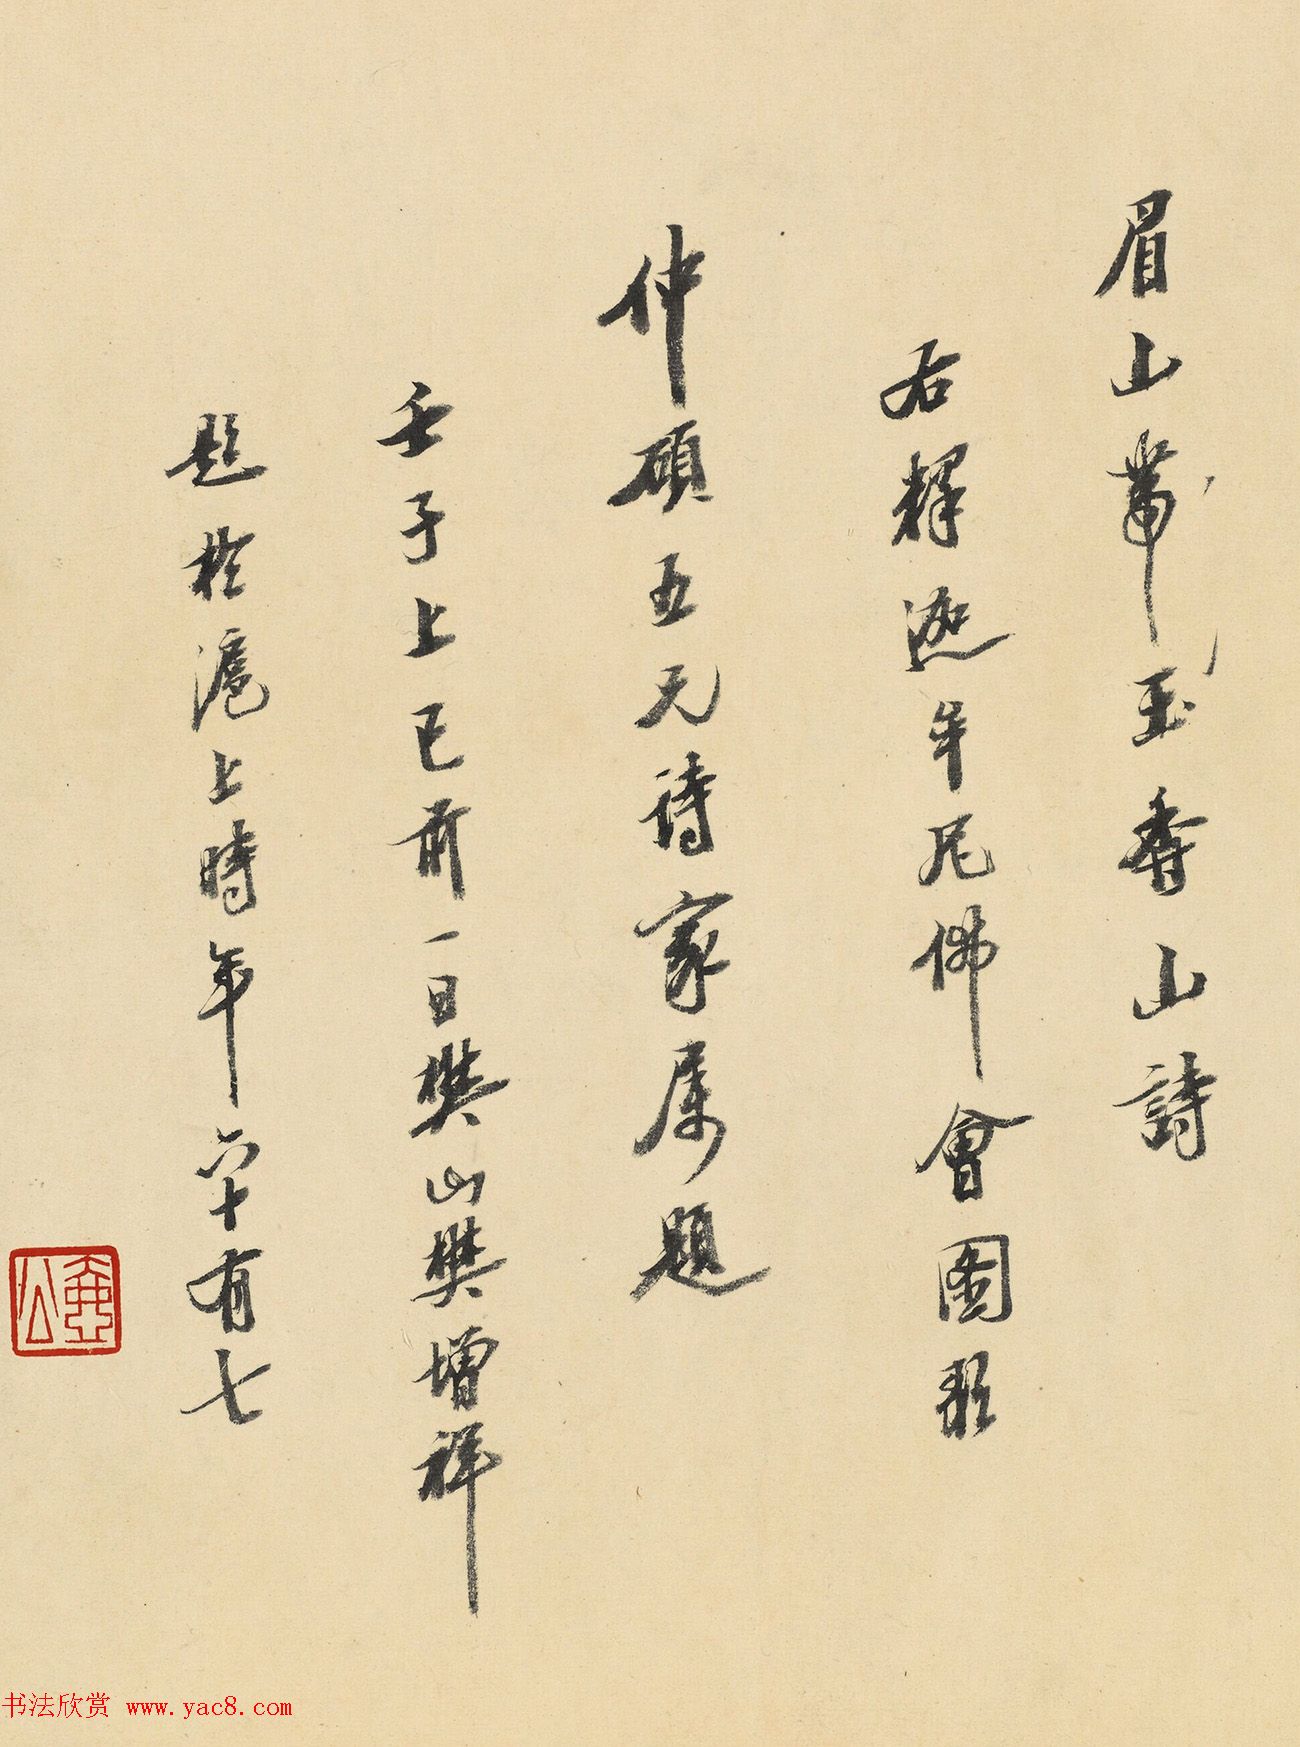 眉山帶玉香山詩
右釋迦牟尼佛會圖歌
仲碩五兄詩家屬題
壬子上巳前一日樊山樊增祥
題於滬上時年六十有七
书法欣赏 www.yac8.com